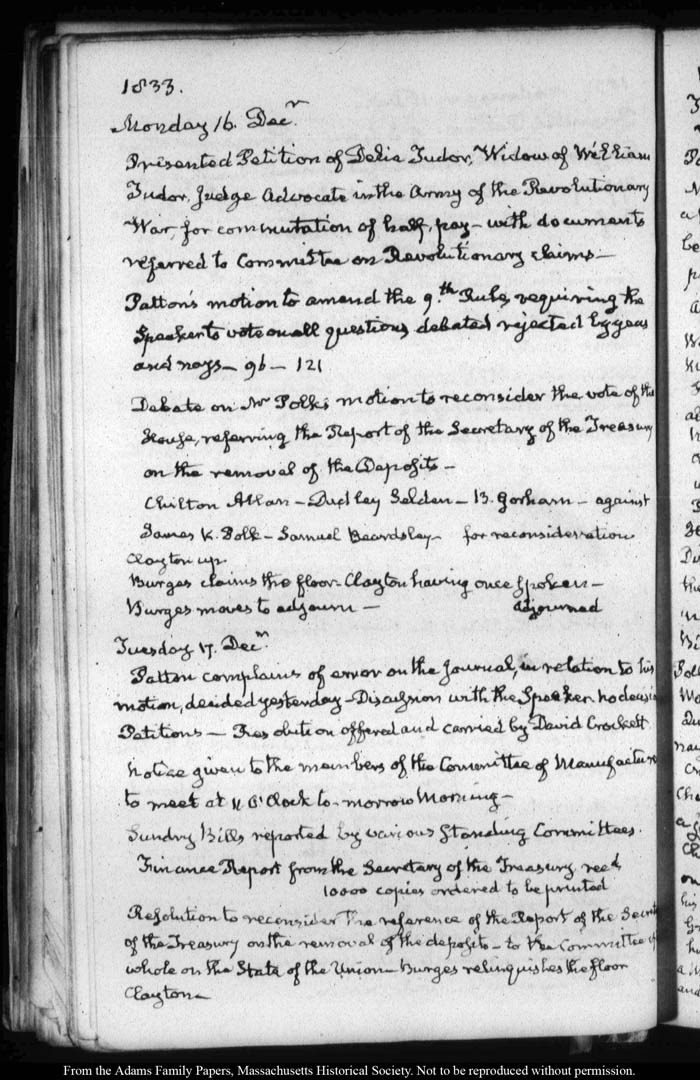 1833.
Monday 16. Decr
Presented Petition of Delia Tudor, Widow of William
Tudor, Judge Advocate in the Army of the Revolutionary
War, for commutation of half-pay – with documents
referred to Committee on Revolutionary claims –
Patton's motion to amend the 9.th Rule, requiring the
Speaker to vote on all questions debated rejected by yeas
and nays – 96 – 121
Debate on Mr Polk's motion to reconsider the vote of the
House, referring the Report of the Secretary of the Treasury
on the removal of the Deposits –
Chilton Allan – Dudley Selden – B. Gorham – against
James K. Polk – Samuel Beardsley – for reconsideration
Clayton up
Burges claims the floor – Clayton having once spoken –
Burges moves to adjourn – adjourned
Tuesday 17. Decr.
Patton complains of error on the Journal, in relation to his
motion, decided yesterday – Discussion with the Speaker. no decisi
Petitions – Resolution offered and carried by David Crockett
Notice given to the members of the Committee of Manufactures
to meet at 11 O'Clock to-morrow Morning –
Sundry Bills reported by various Standing Committees.
Finance Report from the Secretary of the Treasury recd
10000 copies ordered to be printed
Resolution to reconsider the reference of the Report of the Secret
of the Treasury on the removal of the deposits – to the Committee of
whole on the State of the Union – Burges relinquishes the floor
Clayton –
From the Adams Family Papers, Massachusetts Historical Society. Not to be reproduced without permission.